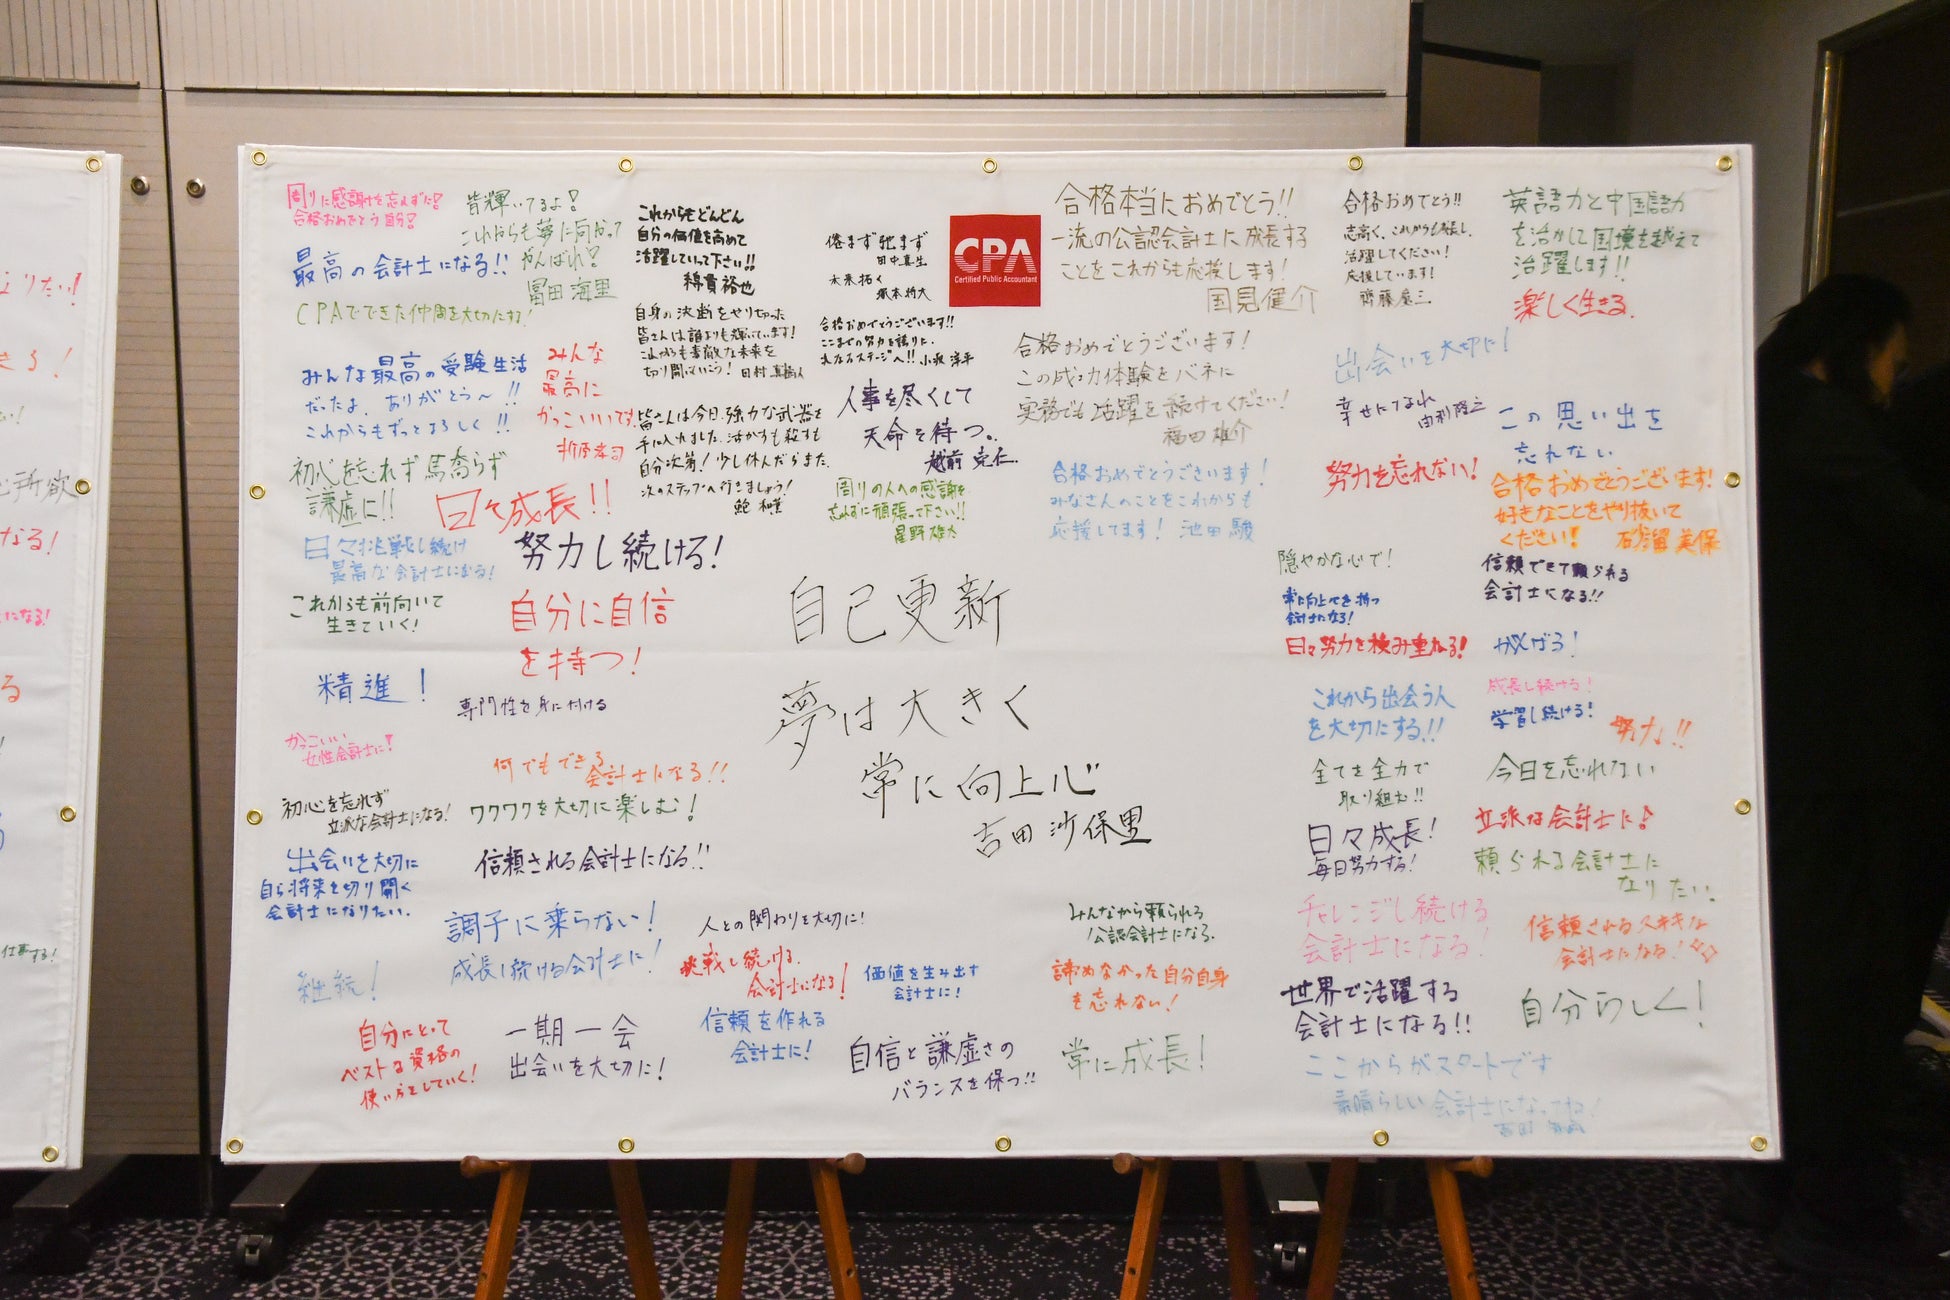 周りに感謝を忘れずに!
合格おめでとう自分!
最高の会計士になる!!
CPAでできた仲間を大切にする!
皆輝いてるよ!
これからも夢に向かって
がんばれ!
冨田 海里
これからもどんどん
自分の価値を高めて
活躍していって下さい!!
綿貫 裕也
自身の決断をやり切った
皆さんは誰よりも輝いています!
これからも素敵な未来を
切り開いていこう!
倦まず弛まず
田中真生
未来拓く
塚本将大
合格おめでとうございます!!
ここまでの努力を誇りに、
次なるステージへ!! 小坂 洋平
CPA
Certified Public Accountant
合格本当におめでとう!!
一流の公認会計士に成長する
ことをこれからも応援します!
国見健介
合格おめでとう!!
志高く、これからも成長し、
活躍してください!
応援しています!
齊藤慶三
英語力と中国語力
を活かして国境を越えて
活躍します!!
楽しく生きる。
みんな最高の受験生活
だったよ、ありがとう〜!!
これからもずっとよろしく!!
みんな
最高に
かっこいいです。
折原孝司
皆さんは今日、強力な武器を
手に入れました。活かすも殺すも
自分次第! 少し休んだらまた、
次のステップへ行きましょう!
人事を尽くして
天命を待つ。
越前 克仁
合格おめでとうございます!
この成功体験をバネに
実務でも活躍を続けてください!
福田 雄介
出会いを大切に!
幸せになれ
由利隆立
この思い出を
忘れない
初心を忘れず 馬喬らず
謙虚に!!
日々成長!!
周りの人への感謝を
忘れずに頑張って下さい!!
星野 雄太
合格おめでとうございます!
みなさんのことをこれからも
応援してます! 池田 駿
努力を忘れない!
合格おめでとうございます!
好きなことをやり抜いて
ください! 砂留 美保
日々挑戦し続け
最高な会計士になる!
努力し続ける!
隠やかな心で!
信頼できて頼られる
会計士になる!!
これからも前向いて
生きていく!
自分に自信
を持つ!
自己更新
常に向上心を持つ
会計士になる!
日々努力を積み重ねる!
がんばる!
精進!
専門性を身に付ける
夢は大きく
常に向上心
吉田 沙保里
これから出会う人
を大切にする!!
成長し続ける!
学習し続ける!
努力!!
かっこいい
女性会計士に!
何でもできる
会計士になる!!
全てを全力で
取り組む!!
今日を忘れない
初心を忘れず
立派な会計士になる!
ワクワクを大切に楽しむ!
日々成長!
毎日努力する!
立派な会計士に♪
出会いを大切に
自ら将来を切り開く
会計士になりたい。
信頼される会計士になる!!
頼られる会計士に
なりたい。
調子に乗らない!
成長し続ける会計士に!
人との関わりを大切に!
挑戦し続ける、
会計士になる!
価値を生み出す
会計士に!
みんなから頼られる
公認会計士になる。
チャレンジし続ける
会計士になる!
信頼されるステキな
会計士になる!
継続!
諦めなかった自分自身
を忘れない!
世界で活躍する
会計士になる!!
自分らしく!
自分にとって
ベストな資格の
使い方をしていく!
一期一会
出会いを大切に!
信頼を作れる
会計士に!
自信と謙虚さの
バランスを保つ!!
常に成長!
ここからがスタートです
素晴らしい会計士になってね!
心所欲
仕事する!